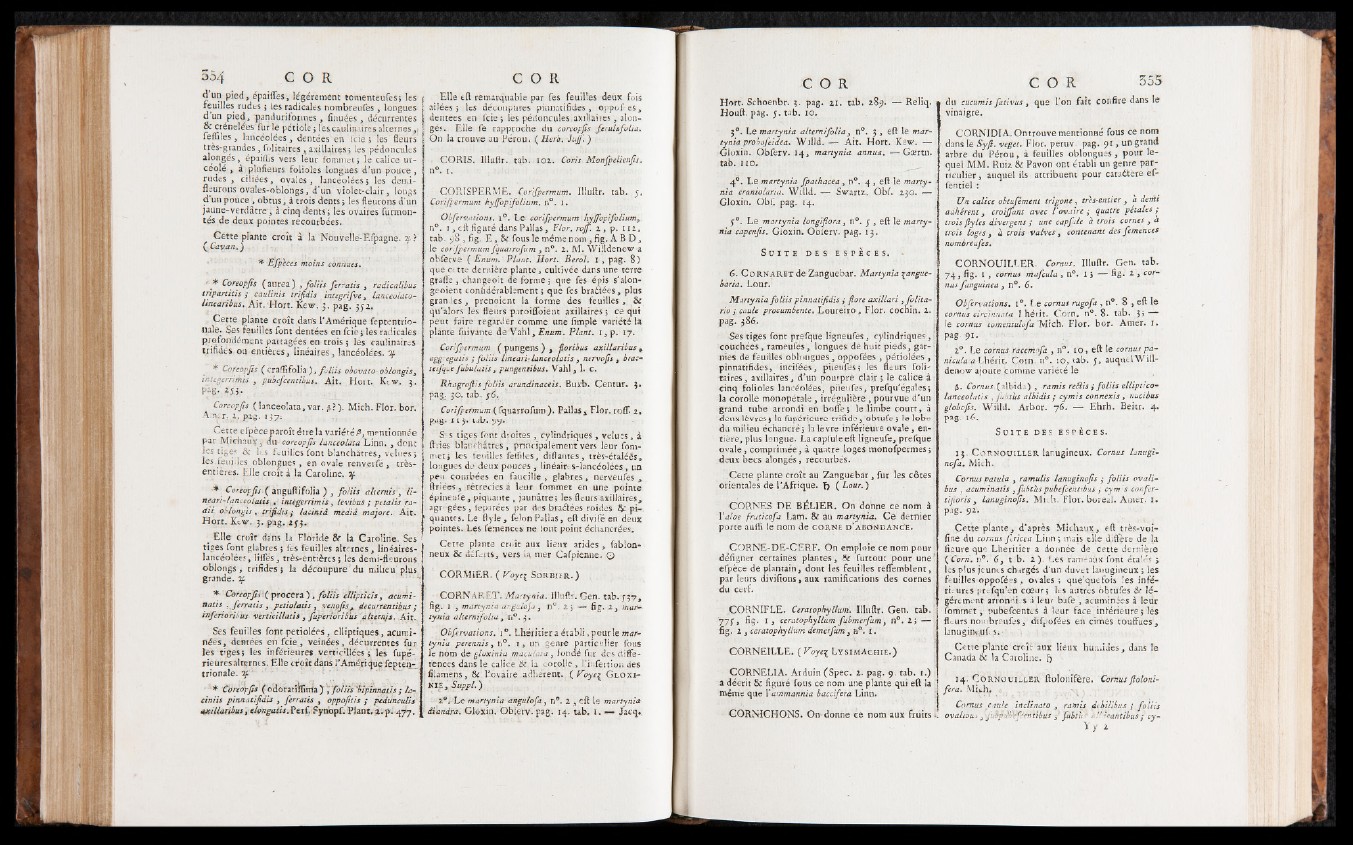 354 C O R
d'un pied, épaiſſes, légérement tomenteuſes; les
feuilles rudes; les radicales nombreuſes, longues
d'un pied, panduriformes, ſinuées, décurrentes
& crénelées ſur le pétiole; les caulinaires alternes,
ſeſſiles, lancéolées, dentées en ſcie; les fleurs
très-grandes, ſolitaires, axillaires; les pédoncules
alongés, épaiſſis vers leur ſommet; le calice ur-
céolé, à pluſieurs folioles longues d'un pouce,
rudes, ciliées, ovales, lancéolées; les demi-
fleurons ovales-oblongs, d'un violet-clair, longs
d'un pouce, obtus, à trois dents; les fleurons d'un
jaune-verdâtre, à cinq dents; les ovaires ſurmon-
tés de deux pointes recourbées.
Cette plante croît à la Nouvelle-Eſpagne. ♃ ?
(Cavan.)
* Eſpèces moins connues.
* Coreopſis (aurea), foliis ſerratis, radicalibus
tripartitis; caulinis trifidis integriſve, lanceolato-
linearibus. Ait. Hort. Kew. 3. pag. 352.
Cette plante croît dans l'Amérique ſeptentrio-
nale. Ses feuilles ſont dentées en ſcie; les radicales
profondément partagées en trois; les caulinaires
trifides ou entières, linéaires, lancéolées. ♃
* Coreopſis (craſſifolia), foliis obovato-oblongis,
integerrimis, pubeſcentibus. Ait. Hort. Kew. 3.
pag. 253.
Coreopſis (lanceolata, var. β?). Mich. Flor. bor.
Amer. 2. pag. 137.
Cette eſpèce paroît être la variété β, mentionnée
par Michaux, du coreopſis lanceolata Linn., dont
les tiges & les feuilles ſont blanchâtres, velues;
les feuilles oblongues, en ovale renverſé, très-
entières. Elle croît à la Caroline. ♃
* Coreopſis (anguſtifolia), foliis alternis, li-
neari-lanceolatis, integerrimis, levibus; petalis ra-
dii oblongis, trifidis; laciniâ mediâ majore. Ait.
Hort. Kew. 3. pag. 253.
Elle croît dans la Floride & la Caroline. Ses
tiges ſont glabres; ſes feuilles alternes, linéaires-
lancéolées, liſſes, très-entières; les demi-fleurons
oblongs, trifides; la découpure du milieu plus
grande. ♃
* Coreopſis (procera), foliis ellipticis, acumi-
natis, ſerratis, petiolatis, venoſis, decurrentibus;
inferioribus verticillatis, ſuperioribus alternis. Ait.
Ses feuilles ſont petiolées, elliptiques, acumi-
nées, dentées en ſcie, veinées, décurrentes ſur
les tiges; les inférieures verticillées; les ſupé-
rieures alternes. Elle croît dans l'Amérique ſepten-
trionale. ♃
* Coreopſis (odoratiſſima); foliis bipinnatis; la-
ciniis pinnatifidis, ſerratis, oppoſitis; pedunculis
axillaribus, elongatis. Perſ. Synopſ. Plant. 2. p. 477.
C O R
Elle eſt remarquable par ſes feuilles deux fois
ailées; les découpures pinnatifides, oppoſées,
dentées en ſcie; les pédoncules axillaires, alon-
gés. Elle ſe rapproche du coreopſis ferulæfolia.
On la trouve au Pérou. (Herb. Juſſ.)
CORIS. Illuſtr. tab. 102. Coris Monſpelienſis.
n°. 1.
CORISPERME. Coriſpermum. Illuſtr. tab. 5.
Coriſpermum hyſſopifolium. n°. 1.
Obſervations. 1°. Le coriſpermum hyſſopifolium,
n°. 1, eſt figuré dans Pallas, Flor. roſſ. 2, p. 112,
tab. 98, fig. E, & ſous le même nom, fig. A B D,
le coriſpermum ſquarroſum, n°. 2. M. Willdenow a
obſervé (Enum. Plant. Hort. Berol. 1, pag. 8)
que cette dernière plante, cultivée dans une terre
graſſe, changeoit de forme; que ſes épis s'alon-
geoient conſidérablement; que ſes bractées, plus
grandes, prenoient la forme des feuilles, &
qu'alors les fleurs paroiſſoient axillaires; ce qui
peut faire regarder comme une ſimple variété la
plante ſuivante de Vahl, Enum. Plant. 1, p. 17.
Coriſpermum (pungens), floribus axillaribus,
aggregatis; foliis lineari-lanceolatis, nervoſis, brac-
teiſque ſubulatis, pungentibus. Vahl, l. c.
Rhagroſtis foliis arundinaceis. Buxb. Centur. 3.
pag. 30. tab. 56.
Coriſpermum (ſquarroſum). Pallas, Flor. roſſ. 2.
pag. 113. tab. 99.
Ses tiges ſont droites, cylindriques, velues, à
ſtries blanchâtres, principalement vers leur ſom-
met; les feuilles ſeſſiles, diſtantes, très-étalées,
longues de deux pouces, linéaires-lancéolées, un
peu courbées en faucille, glabres, nerveuſes,
ſtriées, rétrécies à leur ſommet en une pointe
épineuſe, piquante, jaunâtre; les fleurs axillaires,
agrégées, ſéparées par des bractées roides & pi-
quantes. Le ſtyle, ſelon Pallas, eſt diviſé en deux
pointes. Les ſemences ne ſont point échancrées.
Cette plante croît aux lieux arides, ſablon-
neux & déſerts, vers la mer Caſpienne. ☉
CORMIER. (Voyez SORBIER.)
CORNARET. Martynia. Illuſtr. Gen. tab. 537,
fig. 1, martynia anguloſa, n°. 2; — fig. 2, mar-
tynia alternifolia, n°. 3.
Obſervations. 1°. Lhéritier a établi, pour le mar-
tynia perennis, n°. 1, un genre particulier ſous
le nom de gloxinia maculata, fondé ſur des diffé-
rences dans le calice & la corolle, l'inſertion des
filamens, & l'ovaire adhérent. (Voyez GLOXI-
NIE, Suppl.)
2°. Le martynia anguloſa, n°. 2, eſt le martynia
diandra. Gloxin. Obſerv. pag. 14. tab. 1. — Jacq.
C O R
Hort. Schoenbr. 3. pag. 21. tab. 289. — Reliq.
Houſt. pag. 5. tab. 10.
3°. Le martynia alternifolia, n°. 3, eſt le mar-
tynia proboſcidea. Willd. — Ait. Hort. Kew. —
Gloxin. Obſerv. 14, martynia annua. — Gærtn.
tab. 110.
4°. Le martynia ſpathacea, n°. 4, eſt le marty-
nia craniolaria. Willd. — Swartz. Obſ. 230. —
Gloxin. Obſ. pag. 14.
5°. Le martynia longiflora, n°. 5, eſt le marty-
nia capenſis. Gloxin. Obſerv. pag. 13.
SUITE DES ESPÈCES.
6. CORNARET de Zanguebar. Martynia zangue-
baria. Lour.
Martynia foliis pinnatifidis; flore axillari, ſolita-
rio; caule procumbente. Loureiro, Flor. cochin. 2.
pag. 386.
Ses tiges ſont preſque ligneuſes, cylindriques,
couchées, rameuſes, longues de huit pieds, gar-
nies de feuilles oblongues, oppoſées, pétiolées,
pinnatifides, inciſées, pileuſes; les fleurs ſoli-
taires, axillaires, d'un pourpre clair; le calice à
cinq folioles lancéolées, pileuſes, preſqu'égales;
la corolle monopétale, irrégulière, pourvue d'un
grand tube arrondi en boſſe; le limbe court, à
deux lèvres; la ſupérieure trifide, obtuſe; le lobe
du milieu échancré; la lèvre inférieure ovale, en-
tière, plus longue. La capſule eſt ligneuſe, preſque
ovale, comprimée, à quatre loges monoſpermes;
deux becs alongés, recourbés.
Cette plante croît au Zanguebar, ſur les côtes
orientales de l'Afrique. ♄ (Lour.)
CORNES DE BÉLIER. On donne ce nom à
l'aloe fruticoſa Lam. & au martynia. Ce dernier
porte auſſi le nom de CORNE D'ABONDANCE.
CORNE-DE-CERF. On emploie ce nom pour
déſigner certaines plantes, & ſurtout pour une
eſpèce de plantain, dont les feuilles reſſemblent,
par leurs diviſions, aux ramifications des cornes
du cerf.
CORNIFLE. Ceratophyllum. Illuſtr. Gen. tab.
775, fig. 1, ceratophyllum ſubmerſum, n°. 2; —
fig. 2, ceratophyllum demerſum, n°. 1.
CORNEILLE. (Voyez LYSIMACHIE.)
CORNELIA. Arduin (Spec. 2. pag. 9. tab. 1.)
a décrit & figuré ſous ce nom une plante qui eſt la
même que l'ammannia baccifera Linn.
CORNICHONS. On donne ce nom aux fruits
C O R 355
du cucumis ſativus, que l'on fait confire dans le
vinaigre.
CORNIDIA. On trouve mentionné ſous ce nom
dans le Syſt. veget. Flor. peruv. pag. 91, un grand
arbre du Pérou, à feuilles oblongues, pour le-
quel MM. Ruiz & Pavon ont établi un genre par-
ticulier, auquel ils attribuent pour caractère eſ-
ſentiel:
Un calice obtuſément trigone, très-entier, à demi
adhérent, croiſſant avec l'ovaire; quatre pétales;
trois ſtyles divergens; une capſule à trois cornes, à
trois loges, à trois valves, contenant des ſemences
nombreuſes.
CORNOUILLER. Cornus. Illuſtr. Gen. tab.
74, fig. 1, cornus maſcula, n°. 13 — fig. 2, cor-
nus ſanguinea, n°. 6.
Obſervations. 1°. Le cornus rugoſa, n°. 8, eſt le
cornus circinnata Lhérit. Corn. n°. 8. tab. 3; —
le cornus tomentuloſa Mich. Flor. bor. Amer. 1.
pag. 91.
2°. Le cornus racemoſa, n°. 10, eſt le cornus pa-
niculata Lhérit. Corn. n°. 10. tab. 5, auquel Will-
denow ajoute comme variété le
β. Cornus (albida), ramis rectis; foliis elliptico-
lanceolatis, ſubtùs albidis; cymis connexis, nucibus
globoſis. Willd. Arbor. 76. — Ehrh. Beitr. 4.
pag. 16.
SUITE DES ESPÈCES.
13. CORNOUILLER lanugineux. Cornus lanugi-
noſa. Mich.
Cornus patula, ramulis lanuginoſis; foliis ovali-
bus, acuminatis, ſubtùs pubeſcentibus, cymis confer-
tifloris, lanuginoſis. Mich. Flor. boreal. Amer. 1.
pag. 92.
Cette plante, d'après Michaux, eſt très-voi-
ſine du cornus ſericea Linn; mais elle diffère de la
figure que Lheritier a donnée de cette dernière
(Corn. n°. 6, tab. 2). Les rameaux ſont étalés;
les plus jeunes chargés d'un duvet lanugineux; les
feuilles oppoſées, ovales; quelquefois les infé-
rieures preſqu'en cœur; les autres obtuſes & lé-
gérement arrondies à leur baſe, acuminées à leur
ſommet, pubeſcentes à leur face inférieure; les
fleurs nombreuſes, diſpoſées en cimes touffues,
lanugineuſes.
Cette plante croît aux lieux humides, dans le
Canada & la Caroline. ♄
14. CORNOUILLER ſtolonifère. Cornus ſtoloni-
fera. Mich.
Cornus caule inclinato, ramis debilibus; foliis
Y y 2